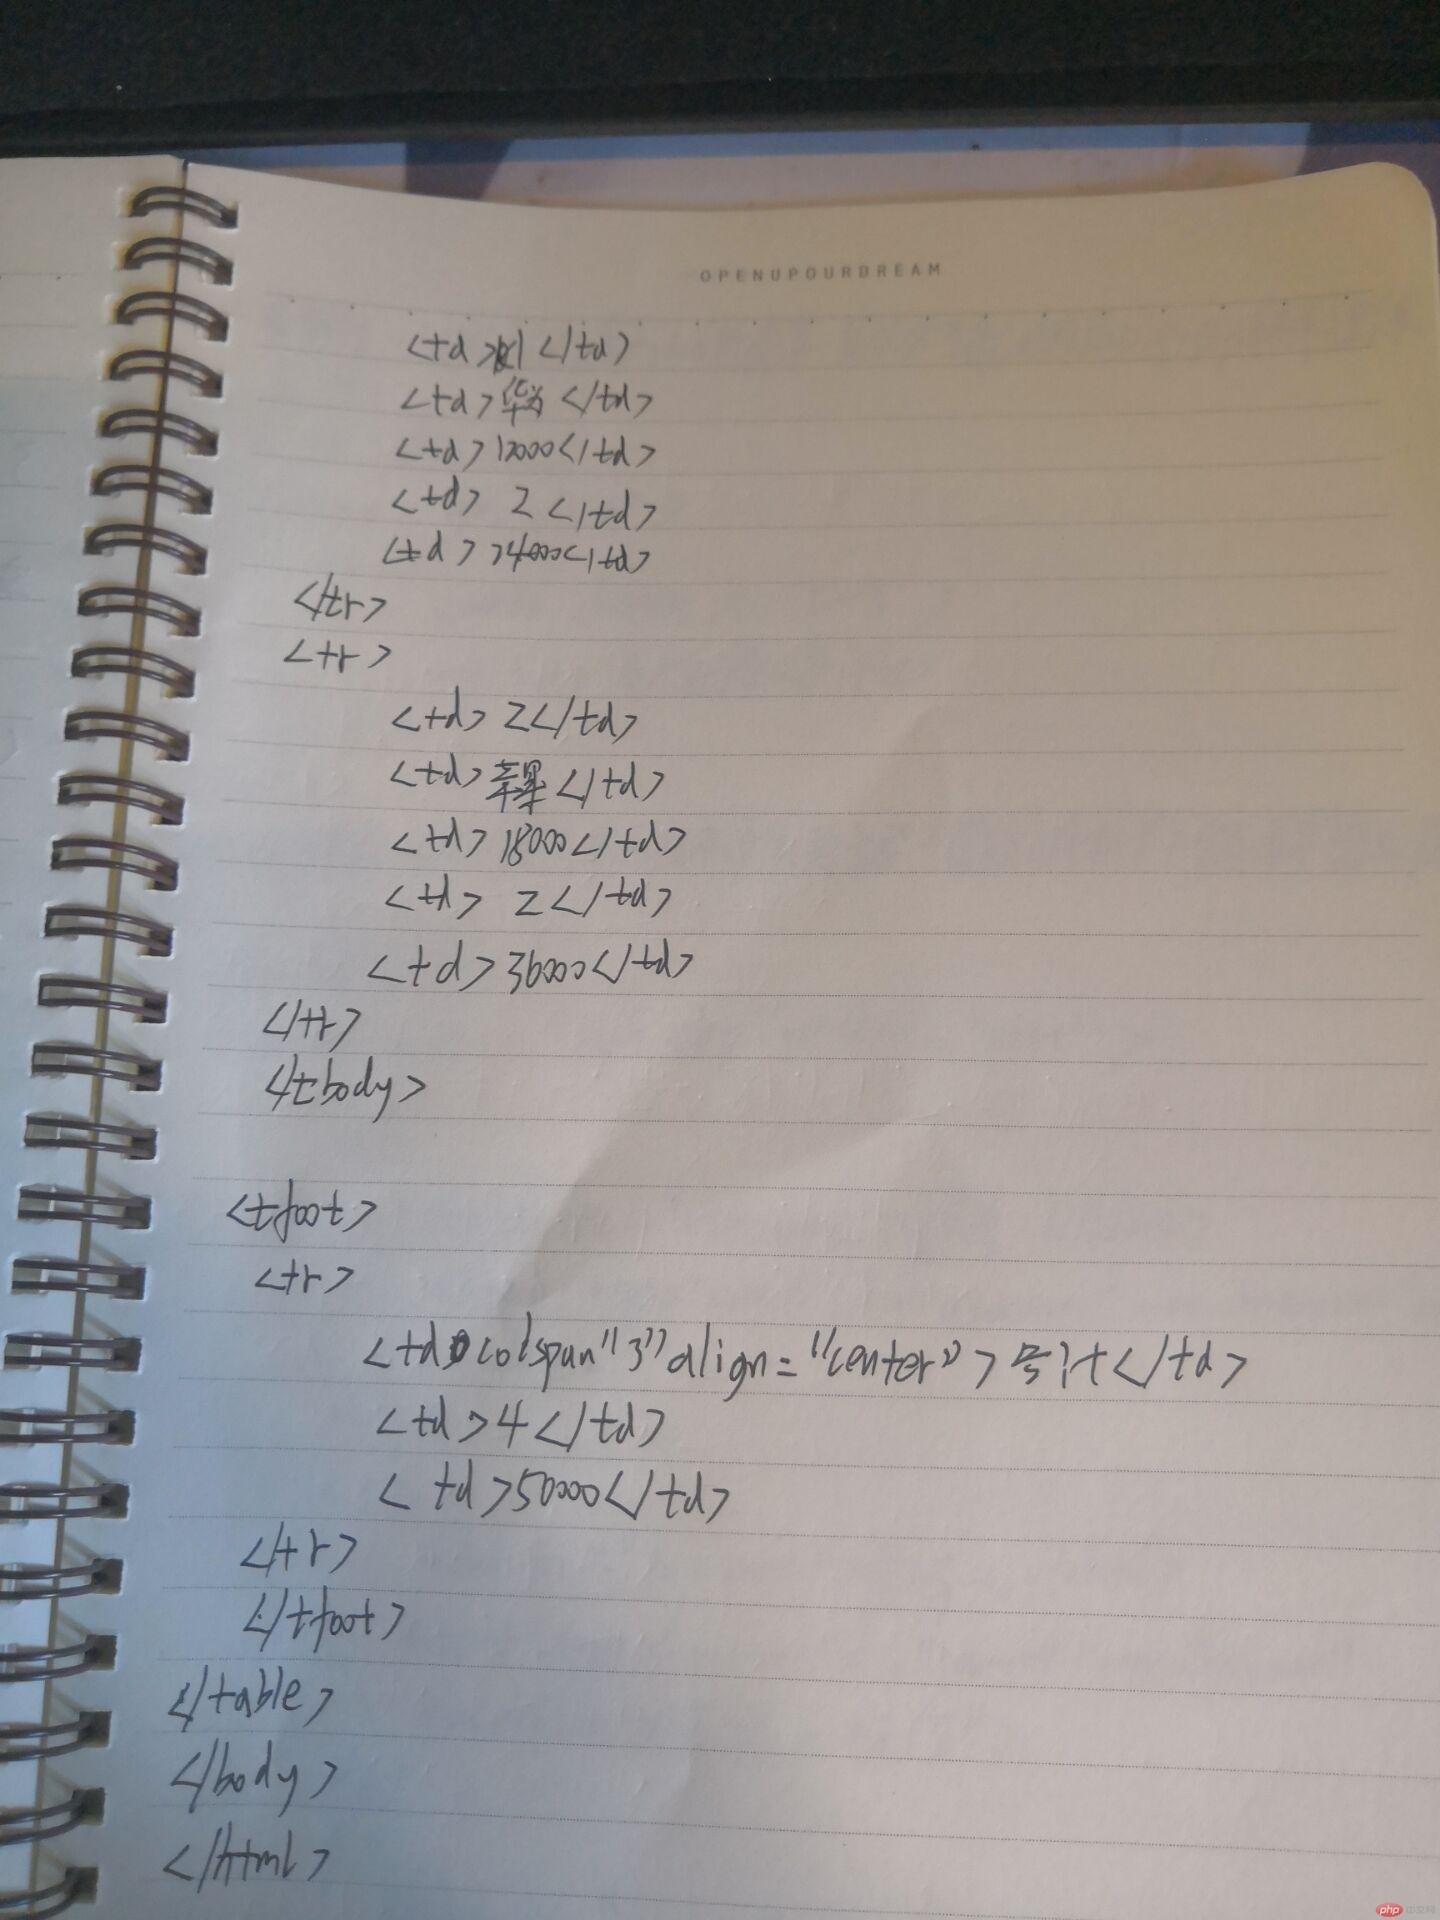 OPENUPOURDREAM
<td>1</td>
<td>华为</td>
<td>12000</td>
<td>2</td>
<td>24000</td>
</tr>
<tr>
<td>2</td>
<td>苹果</td>
<td>18000</td>
<td>2</td>
<td>36000</td>
</tr>
</tbody>
<tfoot>
<tr>
<td colspan"3" align="center">计</td>
<td>4</td>
<td>50000</td>
</tr>
</tfoot>
</table>
</body>
</html>
php 中文网